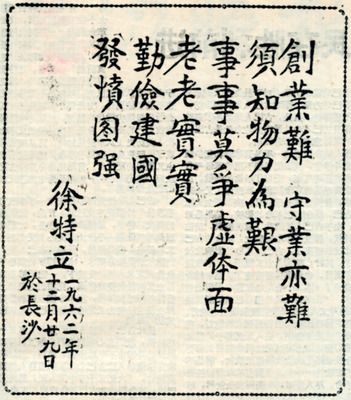 創業難　守業亦難
須知物力为艱
事事莫爭虛体面
老老實實
勤儉建國
發憤图强
徐特立
一九六二年
十二月廿九日
於長沙